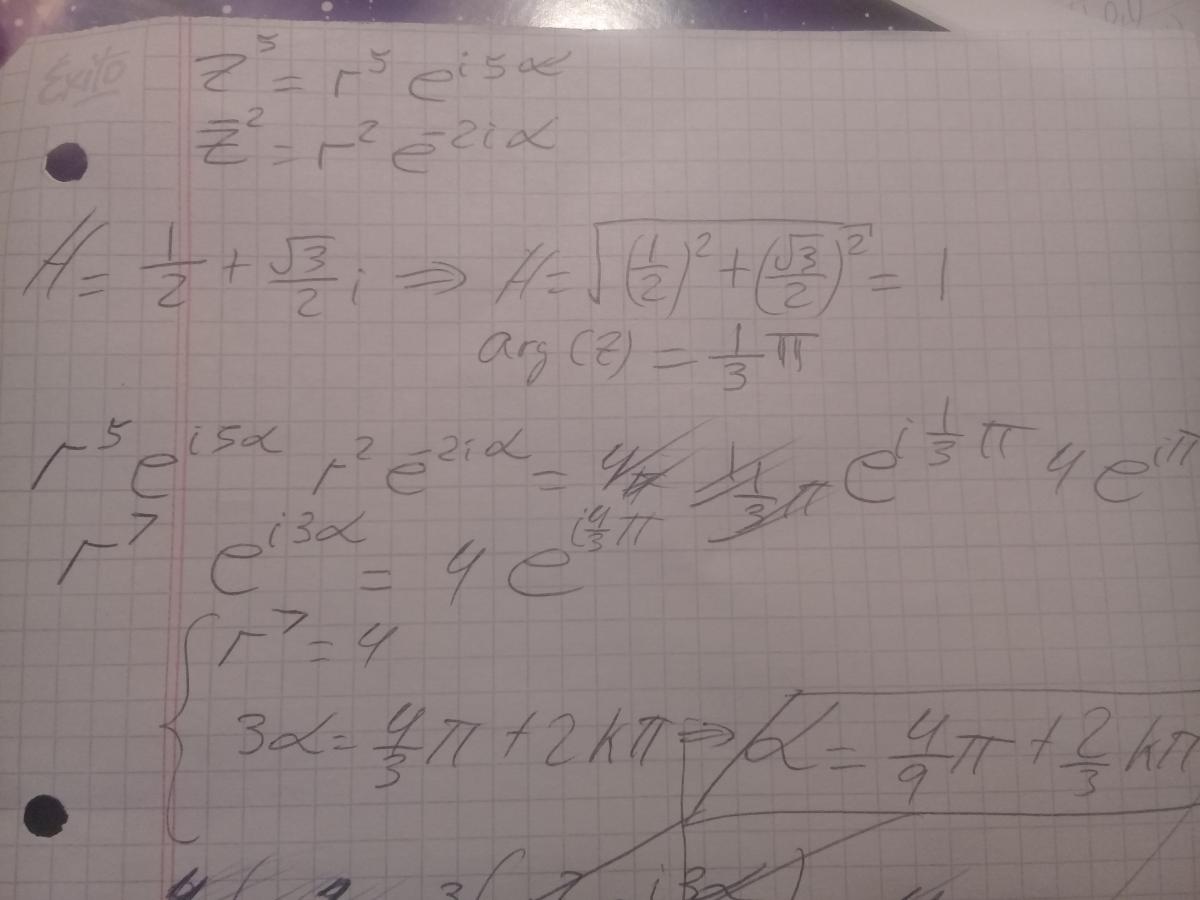 Éxito
z⁵ = r⁵ e^{i5α}
z̄² = r² e^{-2iα}
H = 1/2 + √3/2 i ⇒ H = √((1/2)² + (√3/2)²) = 1
arg(z) = 1/3 π
r⁵ e^{i5α} r² e^{-2iα} = e^{i 1/3 π} 4 e^{iπ}
r⁷ e^{i3α} = 4 e^{i 4/3 π}
{ r⁷ = 4
3α = 4/3 π + 2kπ ⇒ α = 4/9 π + 2/3 kπ